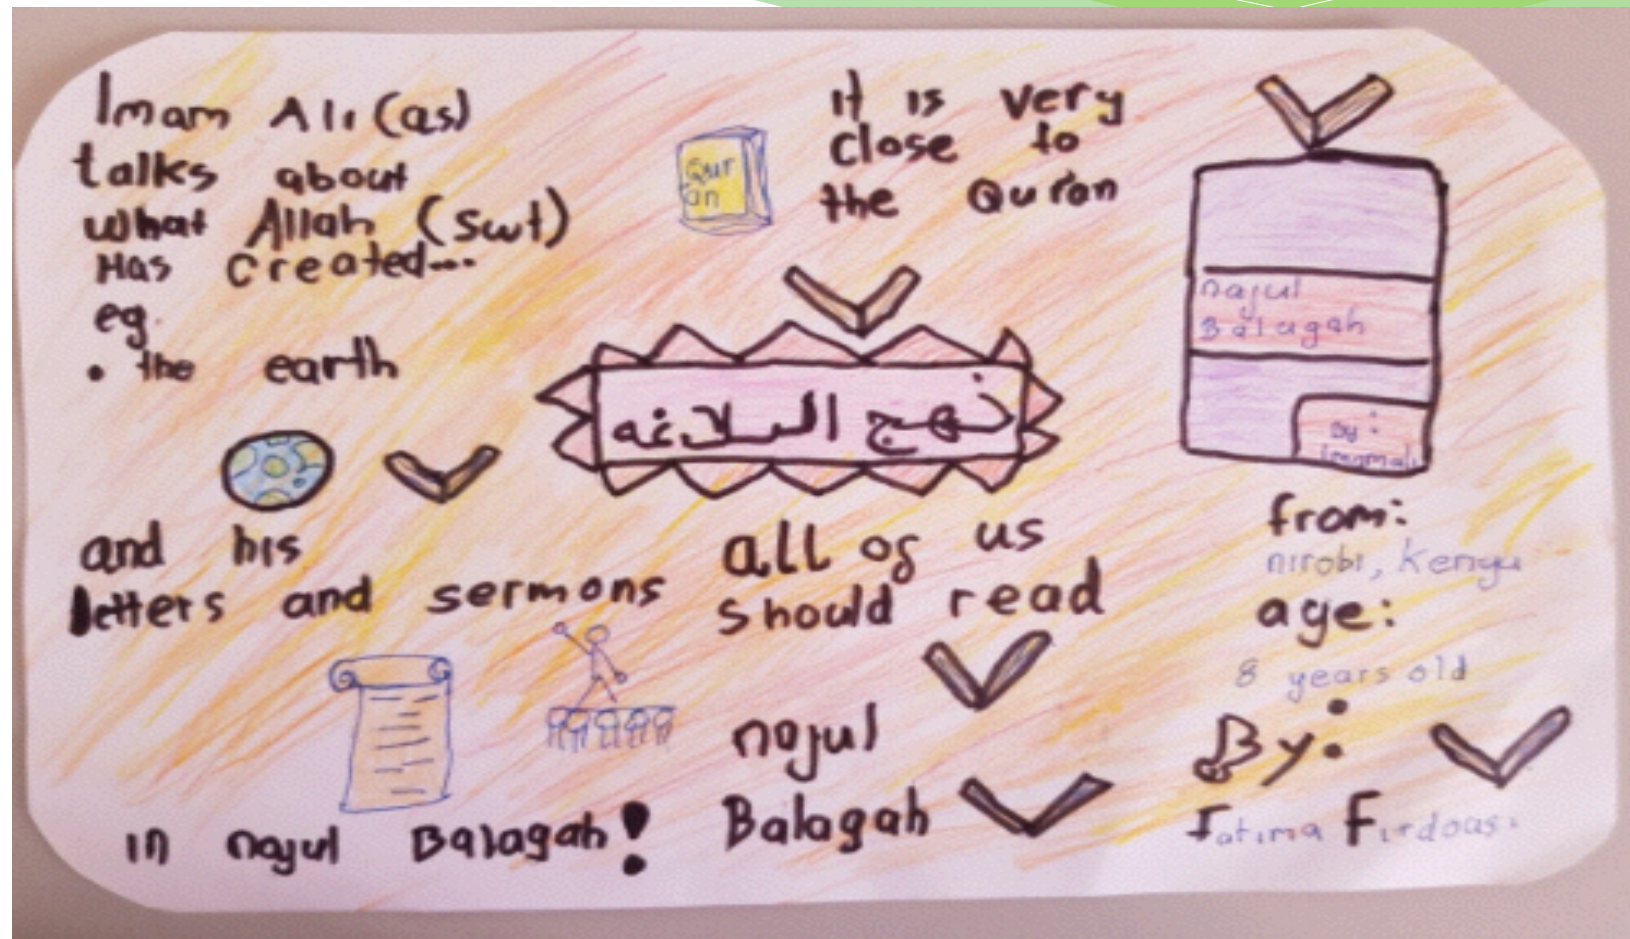 Imam Ali (as)
talks about
what Allah (swt)
Has created...
eg.
• the earth
and his
letters and sermons
in najul Balagah!
It is very
close to
the Quran
Qur
an
نهج البلاغه
all of us
should read
najul
Balagah
najul
Balagah
By:
from:
nirobi, Kenya
age:
8 years old
By:
Fatima Firdousi